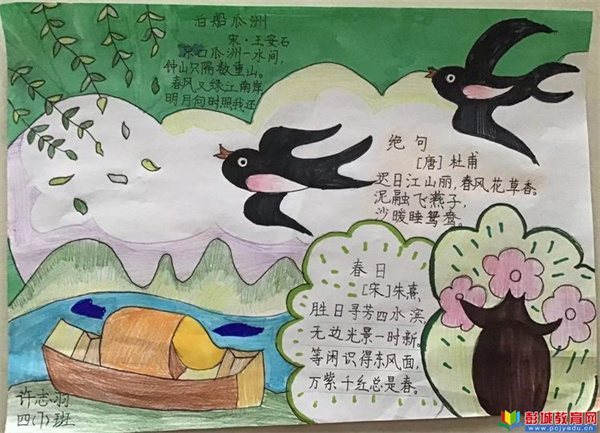 泊船瓜洲
宋·王安石
京口瓜洲一水间,
钟山只隔数重山。
春风又绿江南岸
明月何时照我还
绝句
[唐]杜甫
迟日江山丽,春风花草香。
泥融飞燕子,
沙暖睡鸳鸯。
春日
[宋]朱熹
胜日寻芳四水滨,
无边光景一时新。
等闲识得东风面,
万紫千红总是春。
许志羽
四(1)班
彭城教育网
www.pcjyedu.cn